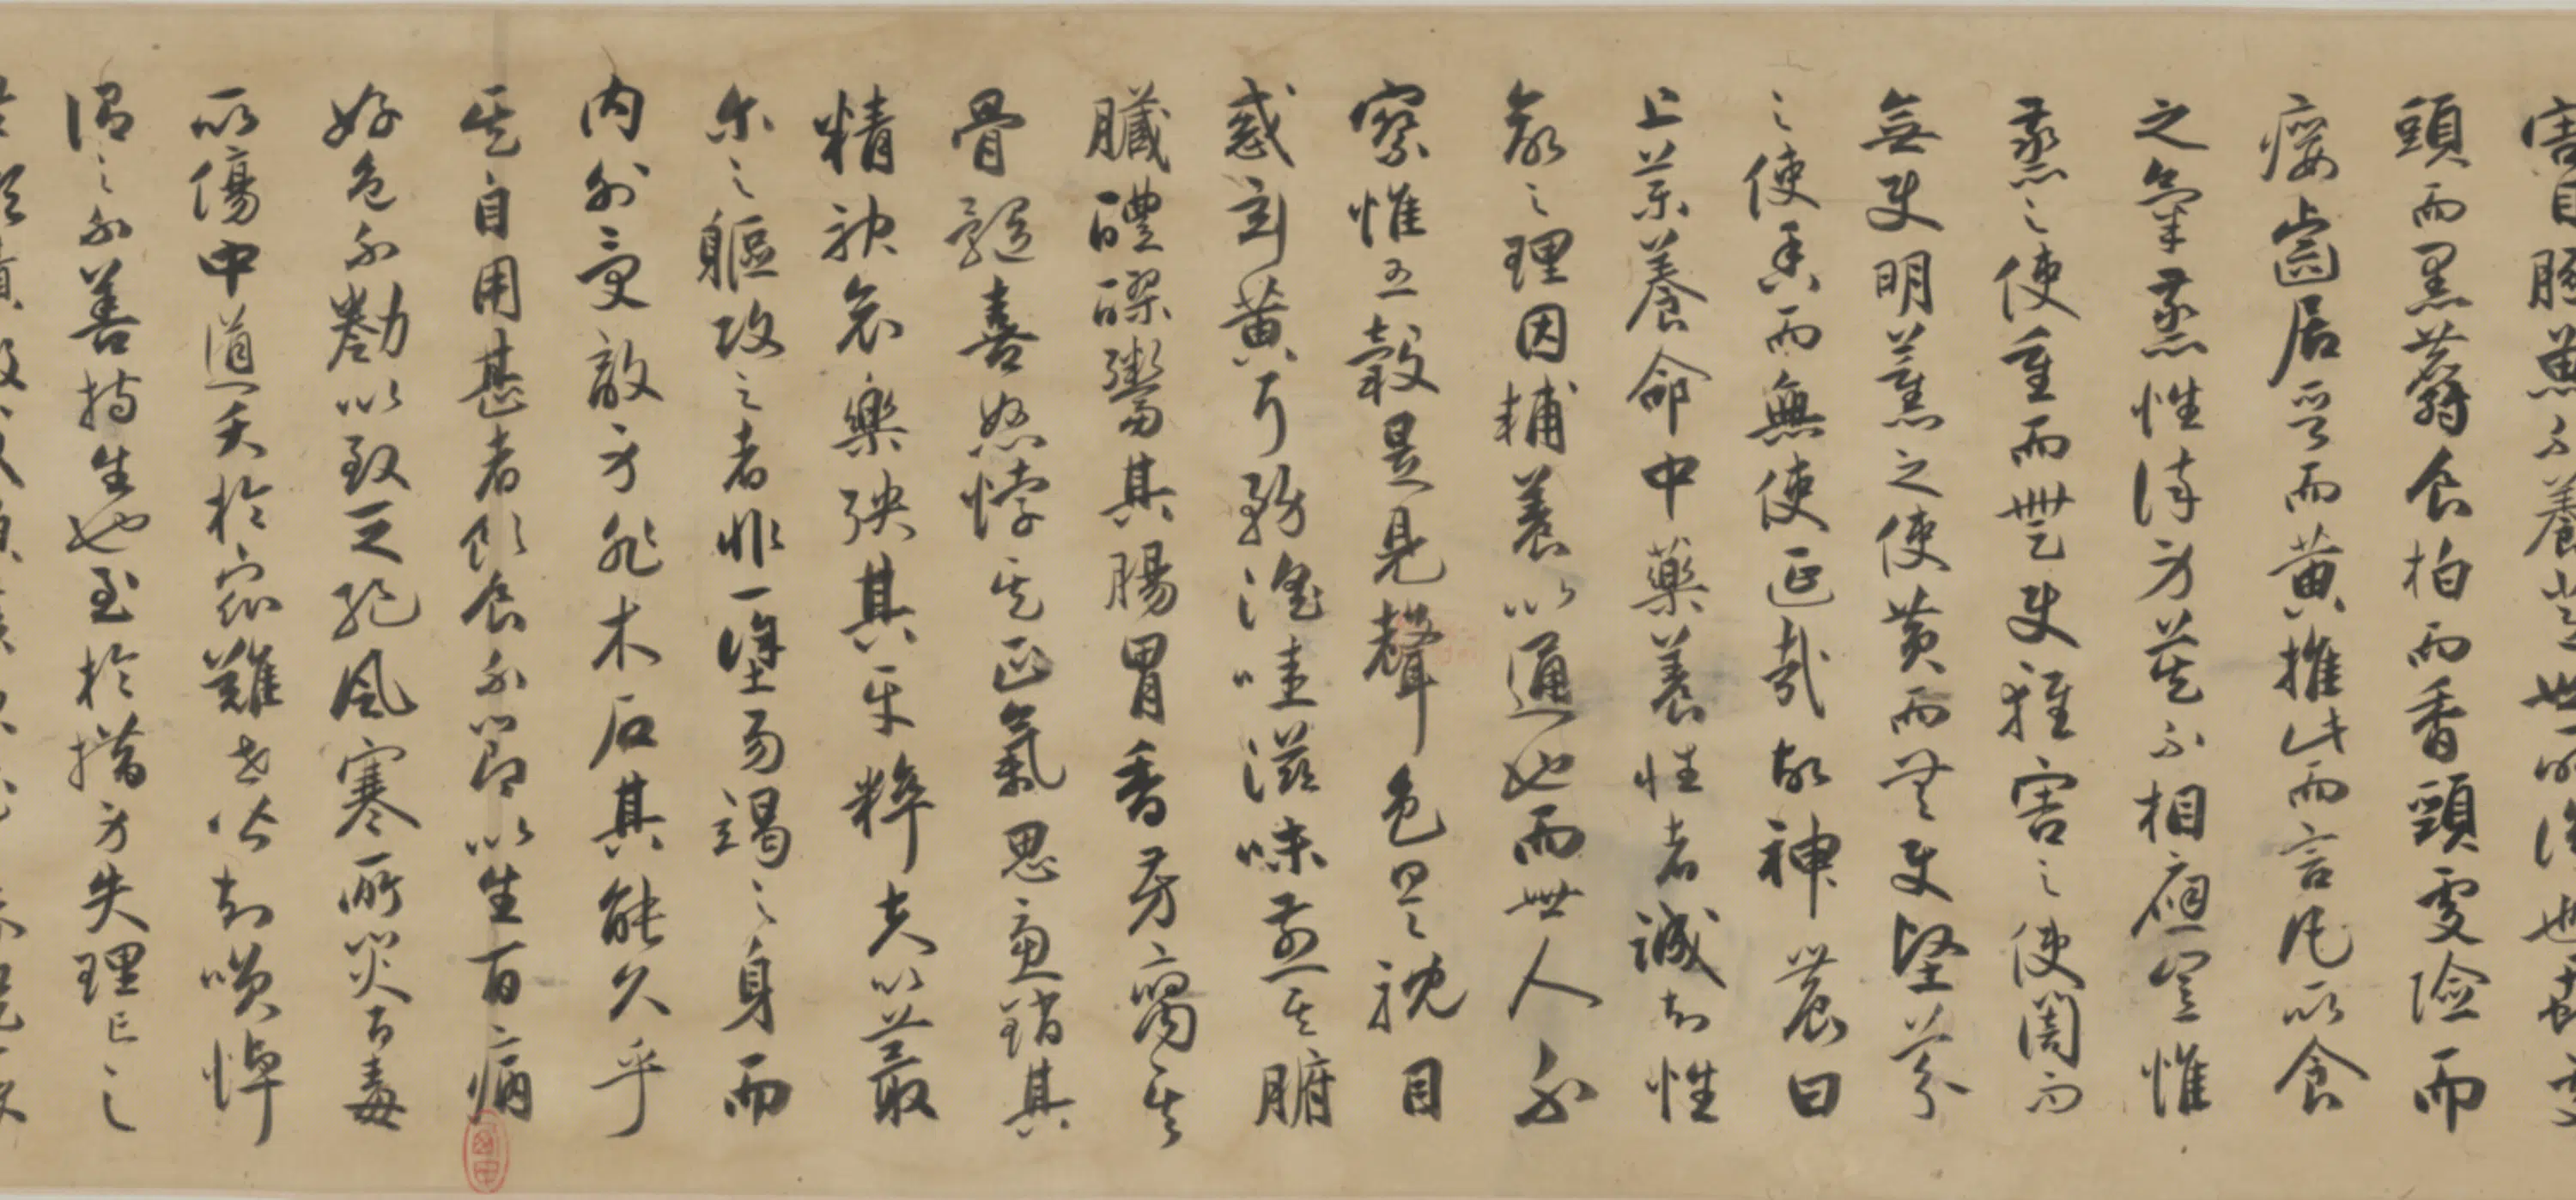 害目豚魚不養常世所識也虱處
頭而黑麝食柏而香頸處險而
癭齒居晉而黃推此而言凡所食
之氣蒸性染身莫不相應豈惟
蒸之使重而無使輕害之使闇而
無使明薰之使黃而無使堅芬
之使香而無使延哉故神農曰
上藥養命中藥養性者誠知性
命之理因輔養以通也而世人不
察惟五穀是見聲色是耽目
惑玄黃耳務淫哇滋味煎其腑
臟醴醪鬻其腸胃香芳腐其
骨髓喜怒悖其正氣思慮銷其
精神哀樂殃其平粹夫以蕞
爾之軀攻之者非一塗易竭之身而
內外受敵身非木石其能久乎
其自用甚者飲食不節以生百病
好色不勌以致乏絕風寒所災百毒
所傷中道夭於眾難世皆知咲悼
謂之不善持生也至於措身失理亡之